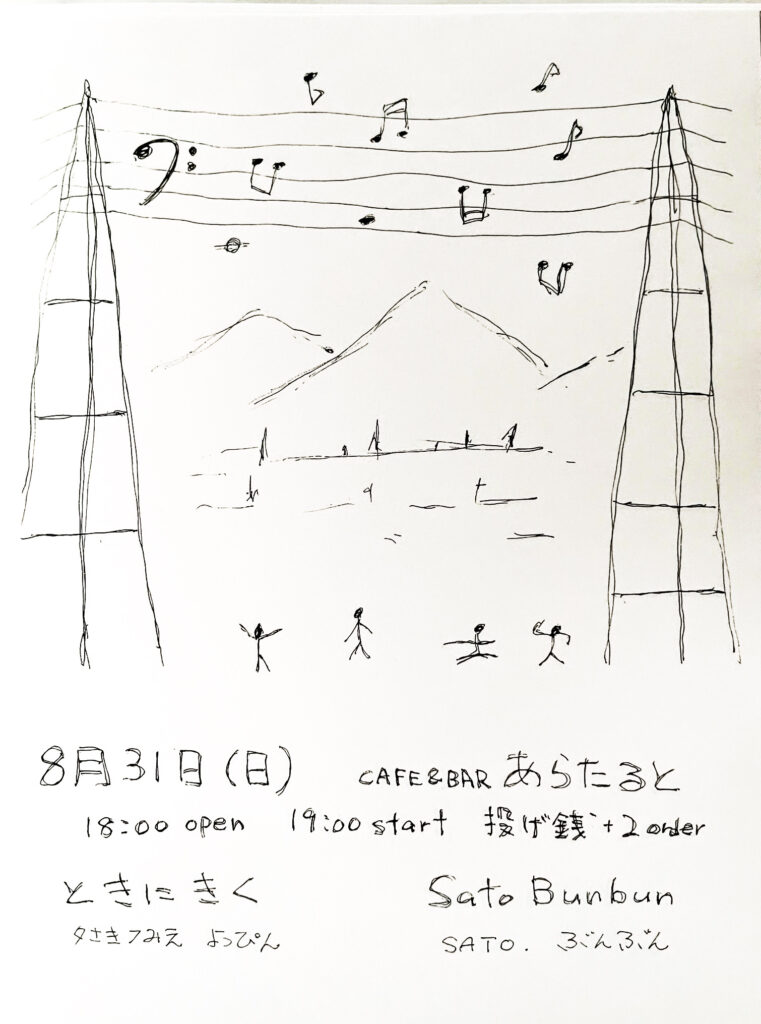 8月31日(日) CAFE&BAR あらたると
18:00 open 19:00 start 投げ銭+2 order
ときにきく Sato Bunbun
夕さきフみえ よっぴん SATO. ぶんぶん